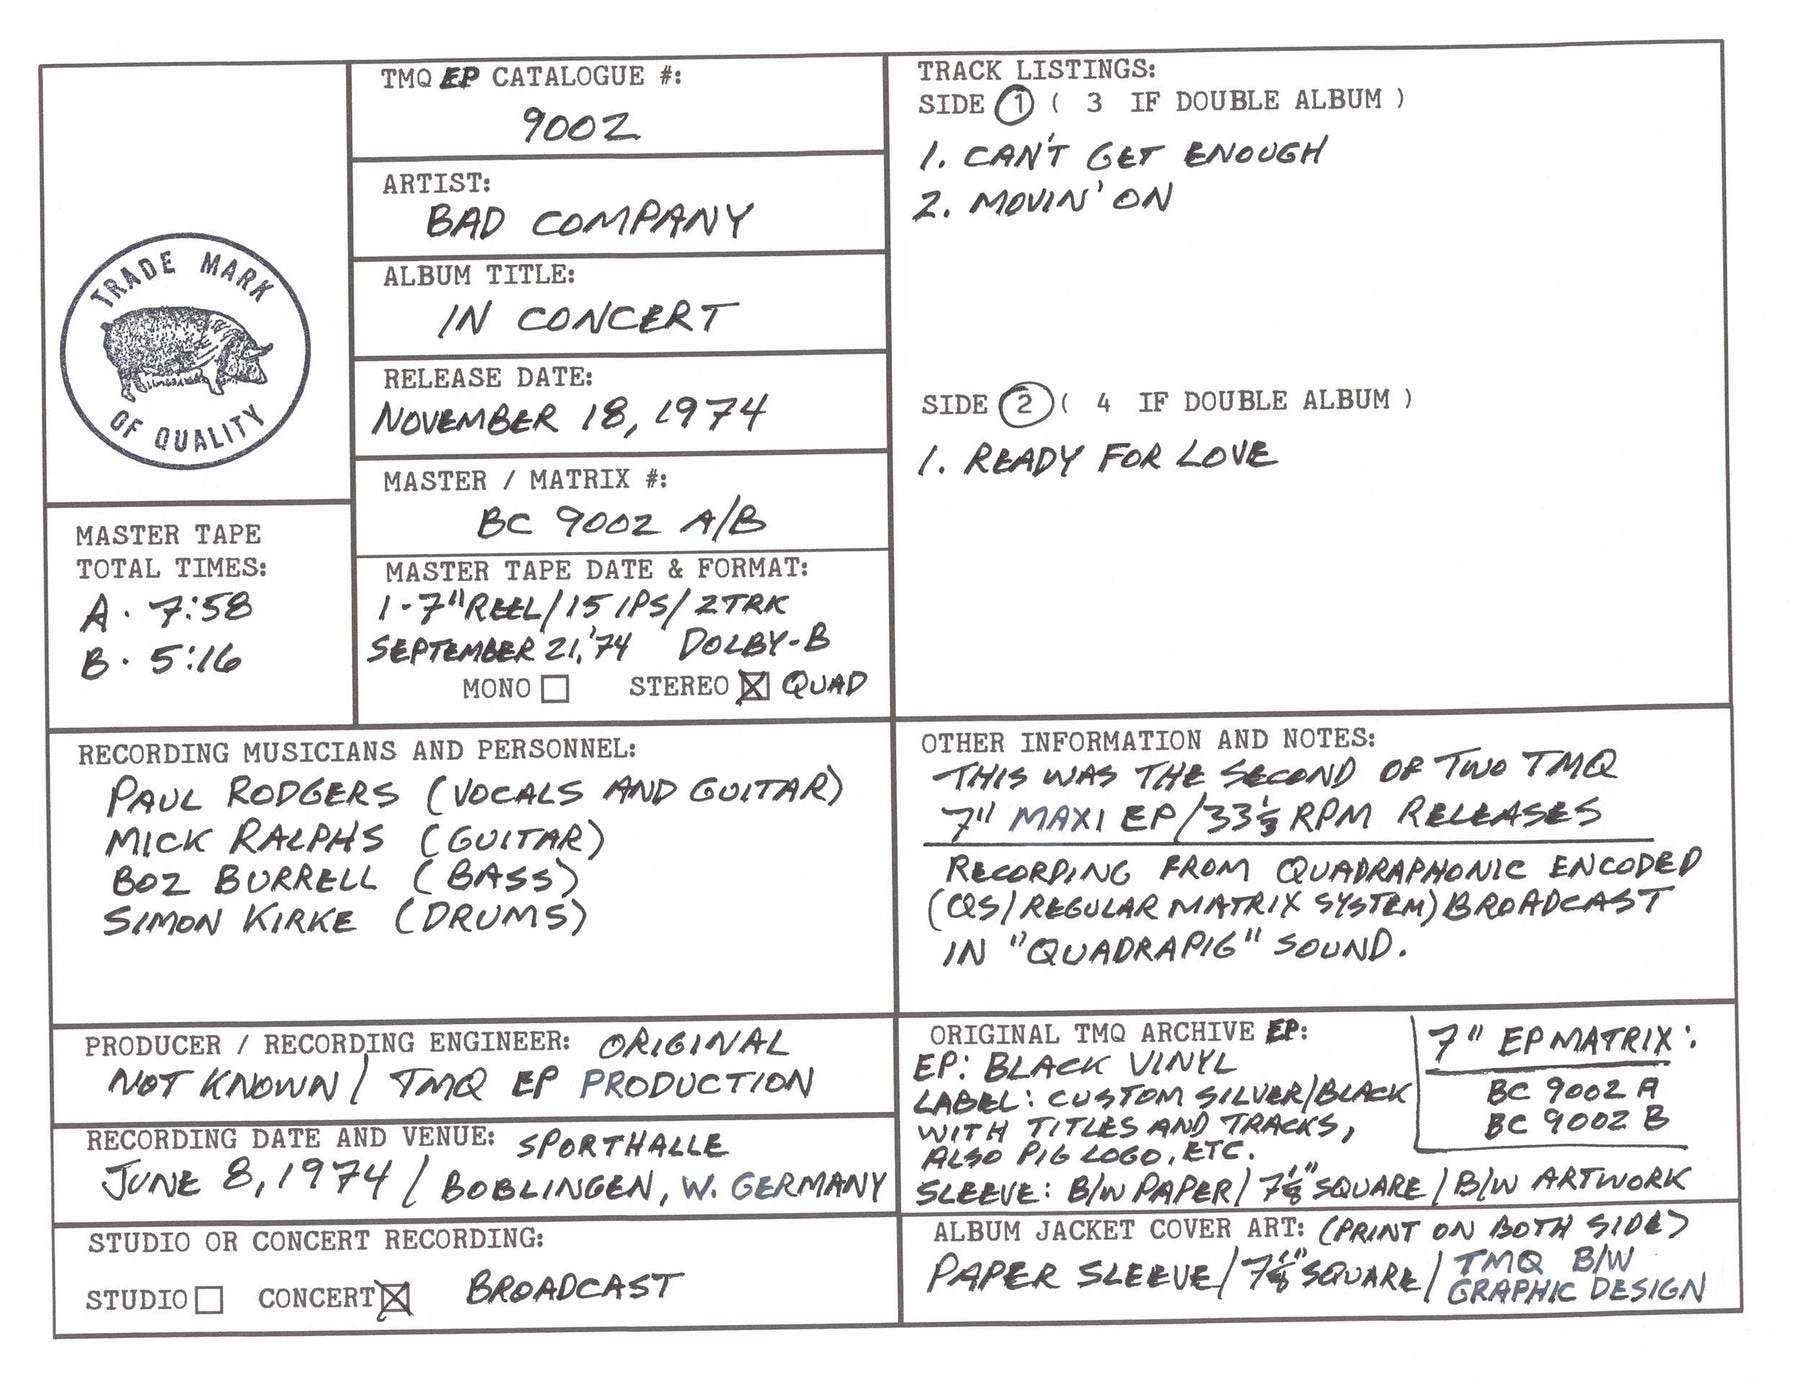 TRADE MARK
OF QUALITY
MASTER TAPE
TOTAL TIMES:
A. 7:58
B. 5:16
TMQ EP CATALOGUE #:
9002
ARTIST:
BAD COMPANY
ALBUM TITLE:
IN CONCERT
RELEASE DATE:
NOVEMBER 18, 1974
MASTER / MATRIX #:
BC 9002 A/B
MASTER TAPE DATE & FORMAT:
1-7" REEL/15 IPS/2TRK
SEPTEMBER 21,'74 DOLBY-B
MONO STEREO QUAD
TRACK LISTINGS:
SIDE 1 ( 3 IF DOUBLE ALBUM )
1. CAN'T GET ENOUGH
2. MOVIN' ON
SIDE 2 ( 4 IF DOUBLE ALBUM )
1. READY FOR LOVE
RECORDING MUSICIANS AND PERSONNEL:
PAUL RODGERS (VOCALS AND GUITAR)
MICK RALPHS (GUITAR)
BOZ BURRELL (BASS)
SIMON KIRKE (DRUMS)
OTHER INFORMATION AND NOTES:
THIS WAS THE SECOND OF TWO TMQ
7" MAXI EP/33⅓ RPM RELEASES
RECORDING FROM QUADRAPHONIC ENCODED
(QS/REGULAR MATRIX SYSTEM) BROADCAST
IN "QUADRAPIG" SOUND.
PRODUCER / RECORDING ENGINEER: ORIGINAL
NOT KNOWN / TMQ EP PRODUCTION
RECORDING DATE AND VENUE: SPORTHALLE
JUNE 8, 1974 / BOBLINGEN, W. GERMANY
STUDIO OR CONCERT RECORDING:
STUDIO CONCERT BROADCAST
ORIGINAL TMQ ARCHIVE EP:
EP: BLACK VINYL
LABEL: CUSTOM SILVER/BLACK
WITH TITLES AND TRACKS,
ALSO PIG LOGO, ETC.
SLEEVE: B/W PAPER/7⅛" SQUARE/B/W ARTWORK
7" EP MATRIX:
BC 9002 A
BC 9002 B
ALBUM JACKET COVER ART: (PRINT ON BOTH SIDE)
PAPER SLEEVE/7⅛" SQUARE/TMQ B/W
GRAPHIC DESIGN